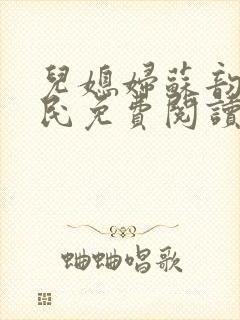 兒媳婦蘇韵
民免費閱讀
蛐蛐唱歌